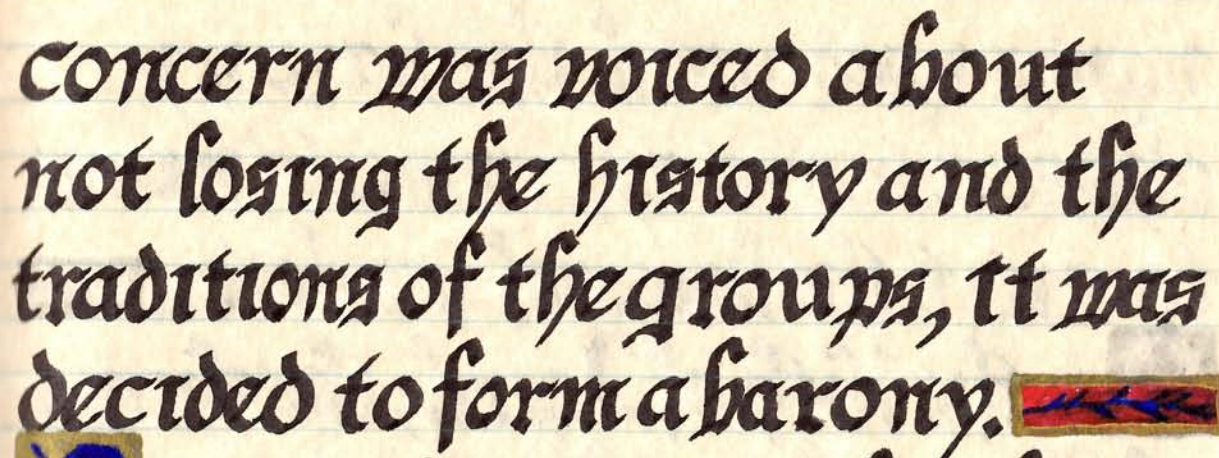 concern was voiced about
not losing the history and the
traditions of the groups, it was
decided to form a barony.